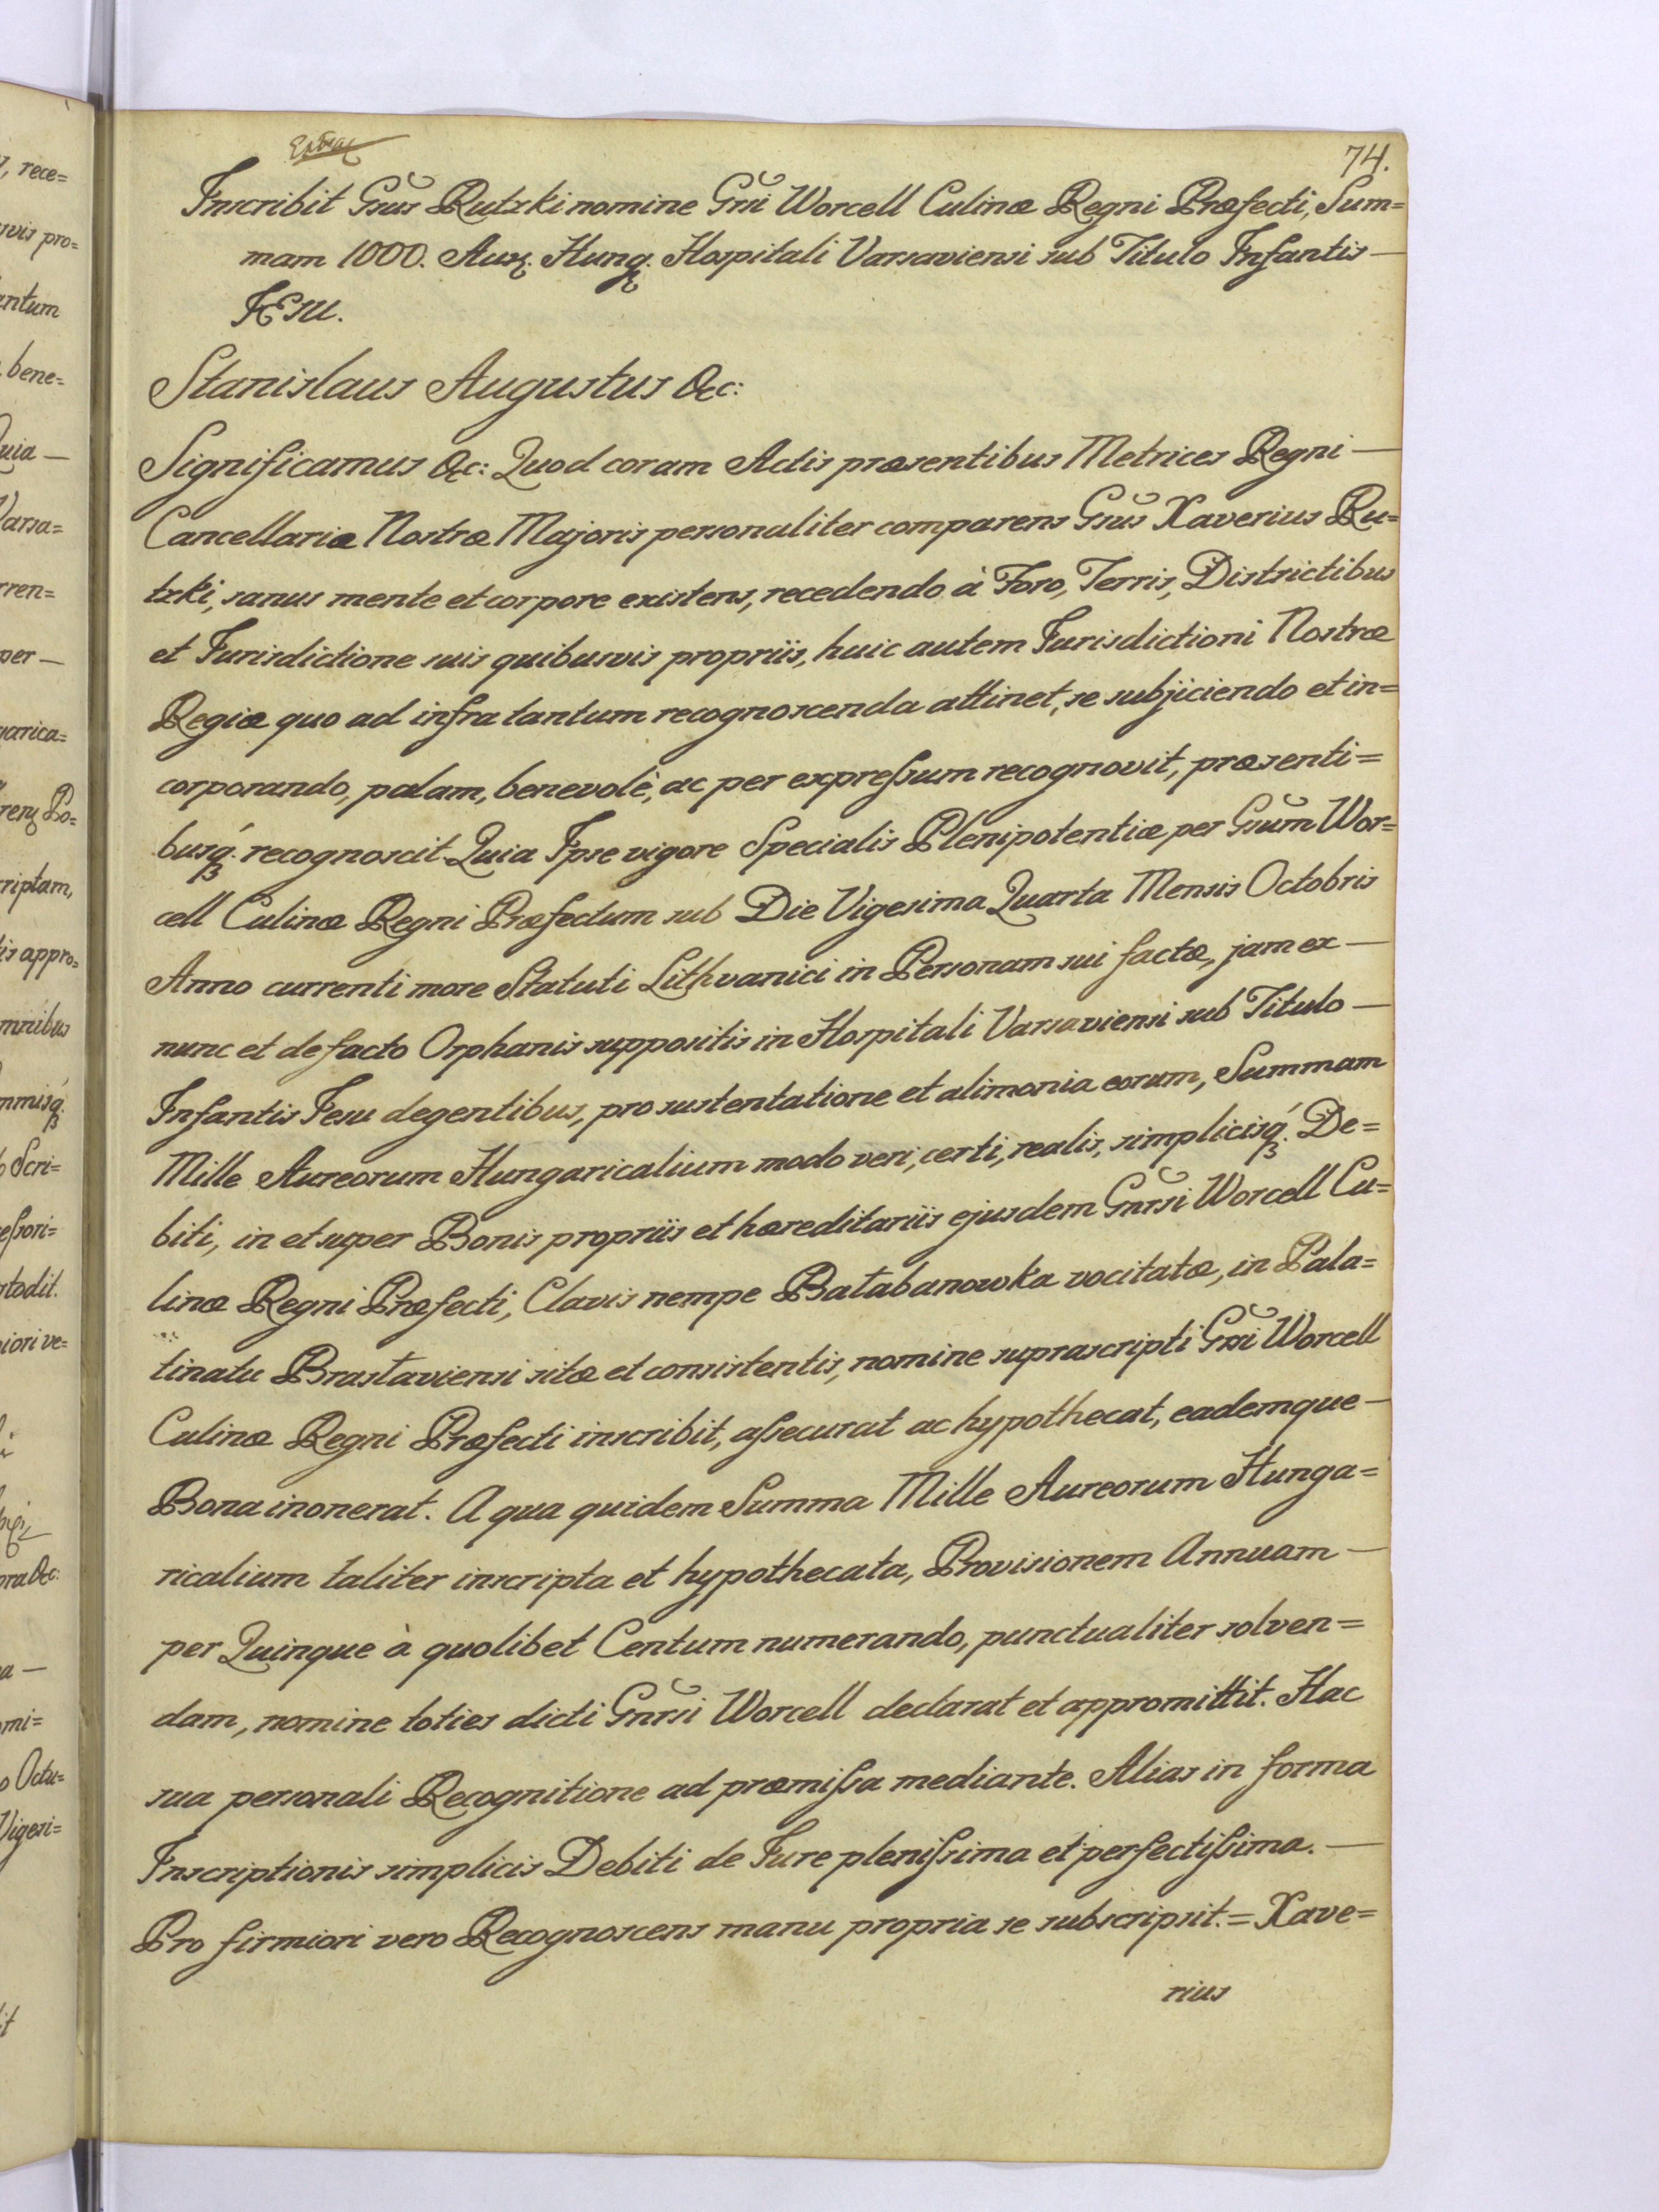 74.
Inscribit Gsus Rutzki nomine Gsi Worcell Culinæ Regni Præfecti, Sum=
mam 1000. Aur. Hung. Hospitali Varsaviensi sub Titulo Infantis —
JEsu.
Stanislaus Augustus &c:
Significamus &c: Quod coram Actis præsentibus Metrices Regni —
Cancellariæ Nostræ Majoris personaliter comparens Gsus Xaverius Ru=
tzki, sanus mente et corpore existens, recedendo à Foro, Terris, Districtibus
et Jurisdictione suis quibusvis propriis, huic autem Jurisdictioni Nostræ
Regiæ quo ad infra tantum recognoscenda attinet, se subjiciendo et in=
corporando, palam, benevolè, ac per expreſsum recognovit, præsenti=
busq́. recognoscit. Quia Ipse vigore Specialis Plenipotentiæ per Gsum Wor=
cell Culinæ Regni Præfectum sub Die Vigesima Quarta Mensis Octobris
Anno currenti more Statuti Lithvanici in Personam sui factæ, jam ex —
nunc et de facto Orphanis suppositis in Hospitali Varsaviensi sub Titulo —
Infantis Jesu degentibus, pro sustentatione et alimonia eorum, Summam
Mille Aureorum Hungaricalium modo veri, certi, realis, simplicisq́. De=
biti, in et super Bonis propriis et hæreditariis ejusdem Gnrsi Worcell Cu=
linæ Regni Præfecti, Clavis nempe Bałabanowka vocitatæ, in Pala=
tinatu Brasłaviensi sitæ et consistentis, nomine suprascripti Gsi Worcell
Culinæ Regni Præfecti inscribit, aſsecurat ac hypothecat, eademque —
Bona inonerat. A qua quidem Summa Mille Aureorum Hunga=
ricalium taliter inscripta et hypothecata, Provisionem Annuam —
per Quinque à quolibet Centum numerando, punctualiter solven=
dam, nomine toties dicti Gnrsi Worcell declarat et appromittit. Hac
sua personali Recognitione ad præmiſsa mediante. Alias in forma
Inscriptionis simplicis Debiti de Jure pleniſsima et perfectiſsima. —
Pro firmiori vero Recognoscens manu propria se subscripsit. = Xave=
rius